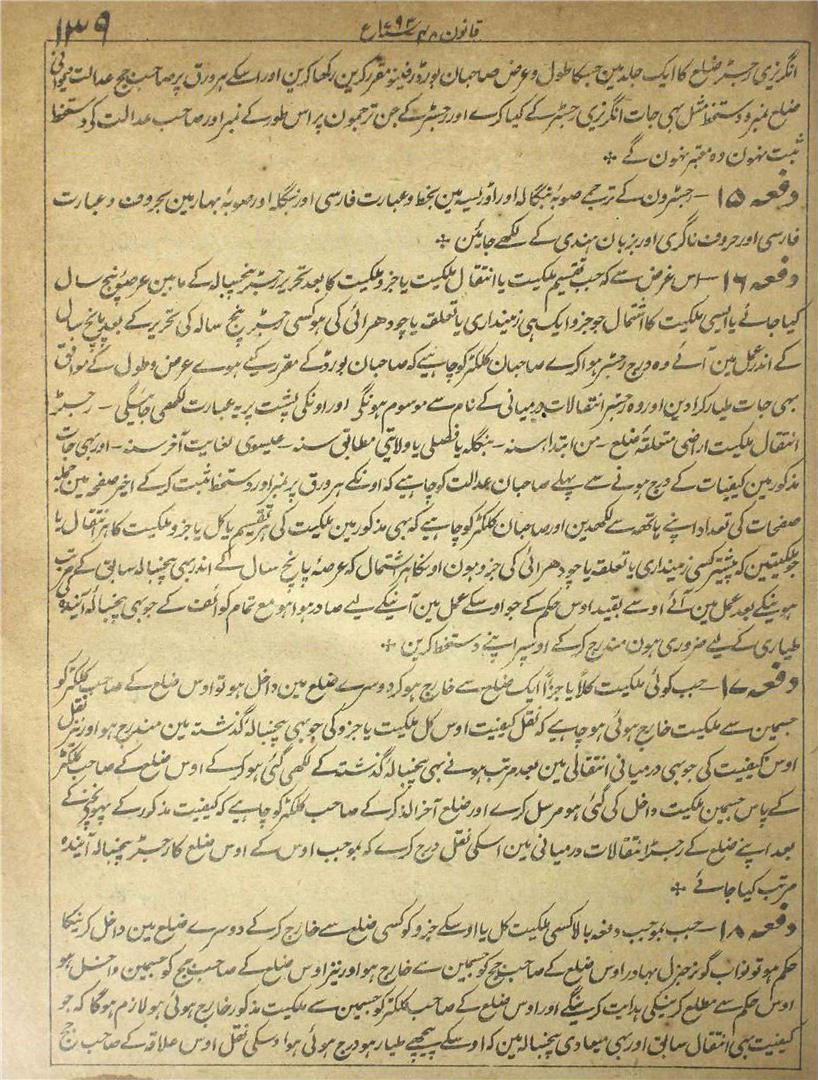 قانون ۴۸ ۱۷۹۳ع
۱۳۹
انگریزی رجسٹر ضلع کا ایک جلد مین جسکا طول و عرض صاحبان بورڈ رفینیو مقرر کرین رکھا کرین اور اسکے ہر ورق پر صاحب جج عدالت دیوانی
ضلع نمبر و دستخط مثل بہی جات انگریزی رجسٹر کے کیا کرے اور رجسٹر کے جن ترجمون پر اس طور کے نمبر اور صاحب عدالت کی دستخط
ثبت نہون وہ معتبر نہون گے *
دفعہ ۱۵ – رجسٹرون کے ترجمے صوبۂ بنگالہ اور اوڑیسہ مین بخط و عبارت فارسی اور بنگلہ اور صوبۂ بہار مین بحروف و عبارت
فارسی اور حروف ناگری اور بزبان ہندی کے لکھے جائین *
دفعہ ۱۶ – اس غرض سے کہ جب تقسیم ملکیت یا انتقال ملکیت یا جزو ملکیت کا بعد تحریر رجسٹر پنجسالہ کے مابین عرصۂ پنج سال
کیا جائے یا ایسی ملکیت کا اشتمال جو جزو ایک ہی زمینداری یا تعلقہ یا چودھرائی کی ہو کسی رجسٹر پنج سالہ کی تحریر کے بعد پانچ سال
کے اندر عمل مین آئے وہ درج رجسٹر ہوا کرے صاحبان کلکٹر کو چاہیے کہ صاحبان بورڈ کے مقرر کیے ہوے عرض و طول کے موافق
بہی جات طیار کرا دین اور وہ رجسٹر انتقالات درمیانی کے نام سے موسوم ہونگی اور اونکی پشت پر یہ عبارت لکھی جائیگی – رجسٹر
انتقال ملکیت اراضی متعلقۂ ضلع – من ابتداء سنہ – بنگلہ یا فصلی یا ولایتی مطابق سنہ – عیسوی لغایت آخر سنہ – اور بہی جات
مذکور مین کیفیات کے درج ہونے سے پہلے صاحبان عدالت کو چاہیے کہ اونکے ہر ورق پر نمبر اور دستخط ثبت کرکے اخیر صفحہ مین جملہ
صفحات کی تعداد اپنے ہاتھہ سے لکھدین اور صاحبان کلکٹر کو چاہیے کہ بہی مذکور مین ملکیت کی ہر تقسیم یا کل یا جزو ملکیت کا ہر انتقال یا
جو ملکیتین کہ پیشتر کسی زمینداری یا تعلقہ یا چودھرائی کی جزو ہون اونکا ہر اشتمال کہ عرصۂ پانچ سال کے اندر بہی پنجسالہ سابق کے مرتب
ہونیکے بعد عمل مین آئے اوسے بقید اوس حکم کے جو اوسکے عمل مین آنیکے لیے صادر ہوا ہو مع تمام کوائف کے جو بہی پنجسالہ آئیندہ کی
طیاری کے لیے ضروری ہون مندرج کرکے اوسپر اپنے دستخط کرین *
دفعہ ۱۷ – جب کوئی ملکیت کلاً یا جزاً ایک ضلع سے خارج ہو کر دوسرے ضلع مین داخل ہو تو اوس ضلع کے صاحب کلکٹر کو
جسمین سے ملکیت خارج ہوئی ہو چاہیے کہ نقل کیفیت اوس کل ملکیت یا جزو کی جو بہی پنجسالہ گذشتہ مین مندرج ہو اور نیز نقل
اوس کیفیت کی جو بہی درمیانی انتقالی مین بعد مرتب ہونے بہی پنجسالہ گذشتہ کے لکھی گئی ہو کرکے اوس ضلع کے صاحب کلکٹر
کے پاس جسمین ملکیت داخل کی گئی ہو مرسل کرے اور ضلع آخر الذکر کے صاحب کلکٹر کو چاہیے کہ کیفیت مذکور کے پہونچنے کے
بعد اپنے ضلع کے رجسٹر انتقالات درمیانی مین اسکی نقل درج کرے کہ بموجب اوس کے اوس ضلع کا رجسٹر پنجسالہ آیندہ
مرتب کیا جائے *
دفعہ ۱۸ – جب بموجب دفعہ بالا کسی ملکیت کل یا اوسکے جزو کو کسی ضلع سے خارج کرکے دوسرے ضلع مین داخل کرنیکا
حکم ہو تو نواب گورنر جنرل بہادر اوس ضلع کے صاحب جج کو جسمین سے خارج ہو اور نیز اوس ضلع کے صاحب جج کو جسمین داخل ہو
اوس حکم سے مطلع کرنیکی ہدایت کرینگے اور اوس ضلع کے صاحب کلکٹر کو جسمین سے ملکیت مذکور خارج ہوئی ہو لازم ہوگا کہ جو
کیفیت بہی انتقال سابق اور بہی میعادی پنجسالہ مین کہ اوسکے پیچھے طیار ہو درج ہوئی ہو اوسکی نقل اوس علاقہ کے صاحب جج